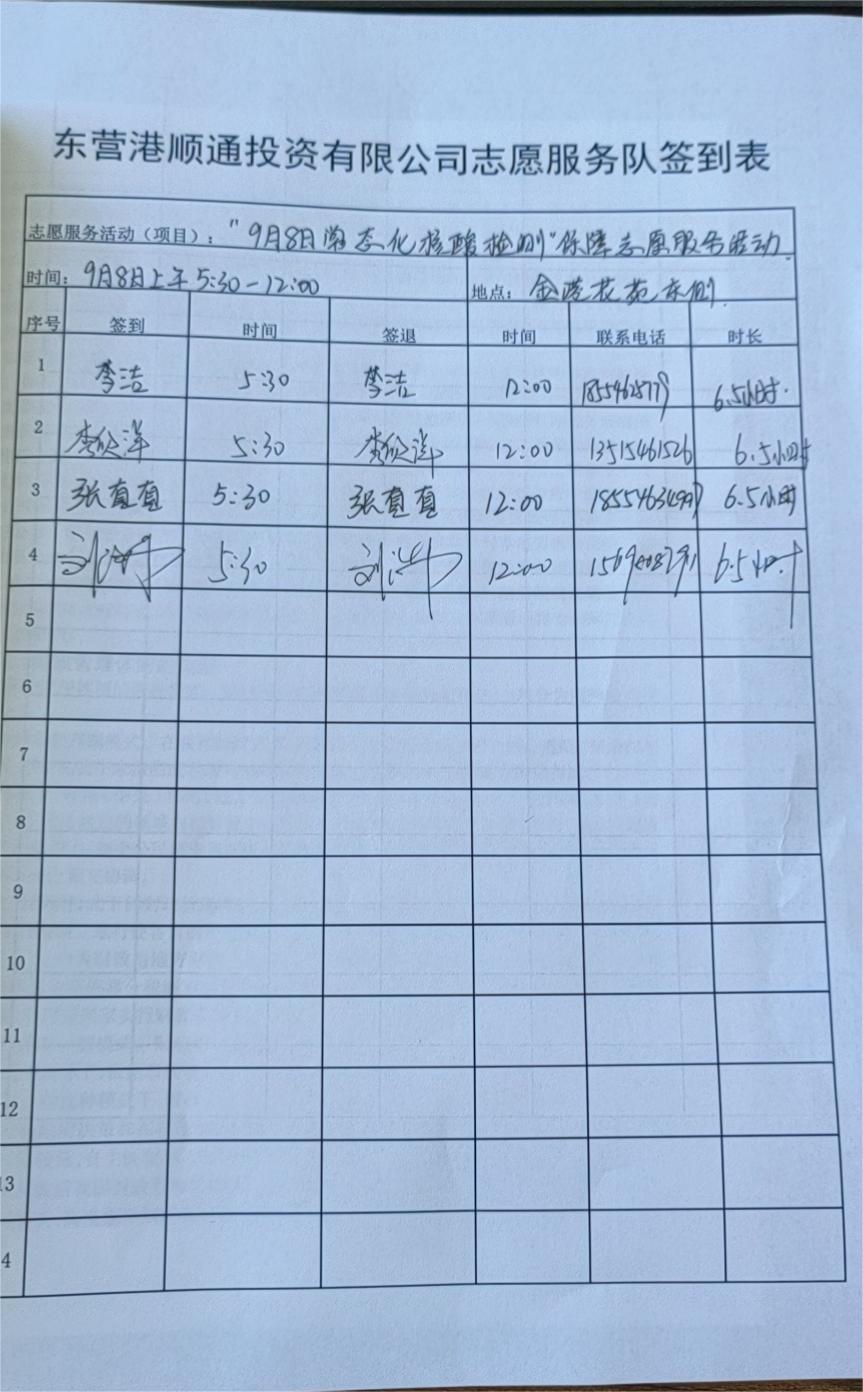 东营港顺通投资有限公司志愿服务队签到表
志愿服务活动（项目）："9月8日常态化核酸检测"保障志愿服务活动.
时间：9月8日上午5:30-12:00 地点：金港花苑东侧.
序号 签到 时间 签退 时间 联系电话 时长
1 李洁 5:30 李洁 12:00 6.5小时.
2 5:30 12:00 13515461526 6.5小时
3 张直直 5:30 张直直 12:00 6.5小时
4 5:30 12:00 6.5小时
5
6
7
8
9
10
11
12
13
4